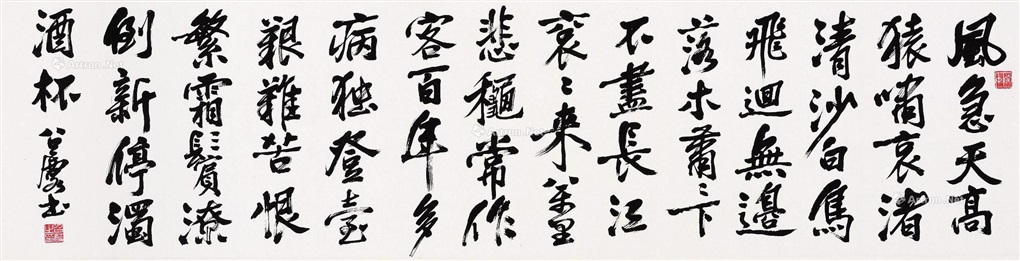 風急天高
猿嘯哀渚
清沙白鳥
飛迴無邊
落木蕭〻下
不盡長江
衮〻來萬里
悲穐常作
客百年多
病独登臺
艱難苦恨
繁霜鬢潦
倒新停濁
酒杯 公虞书
Artron.Net